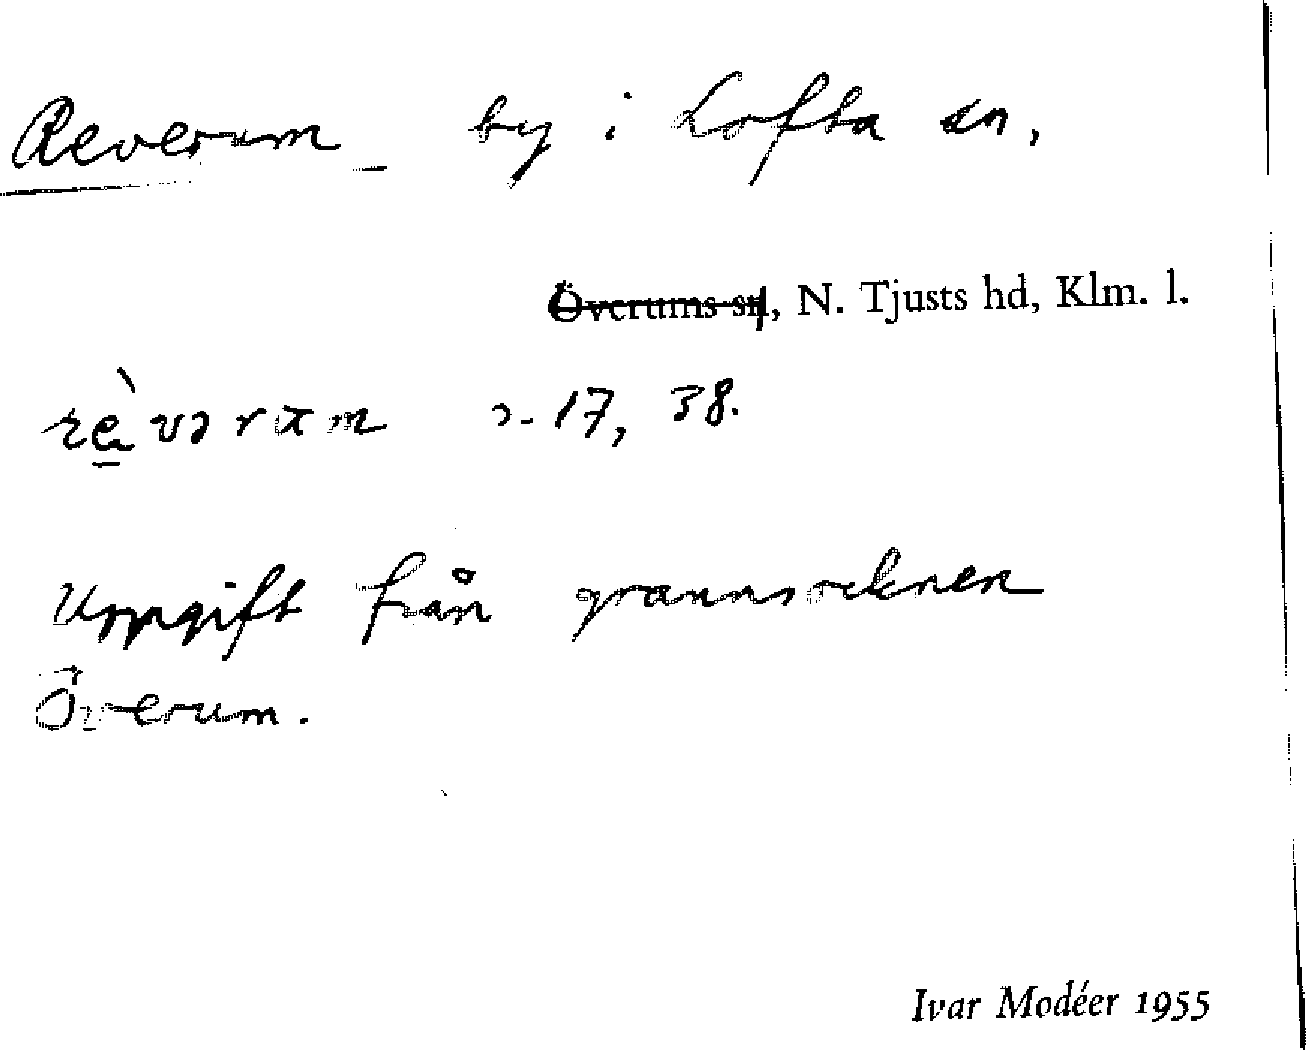 Reverum by i Lofta sn,
Överums sn, N. Tjusts hd, Klm. l.
17, 38.
Uppgift från grannsocknen
Överum.
Ivar Modéer 1955